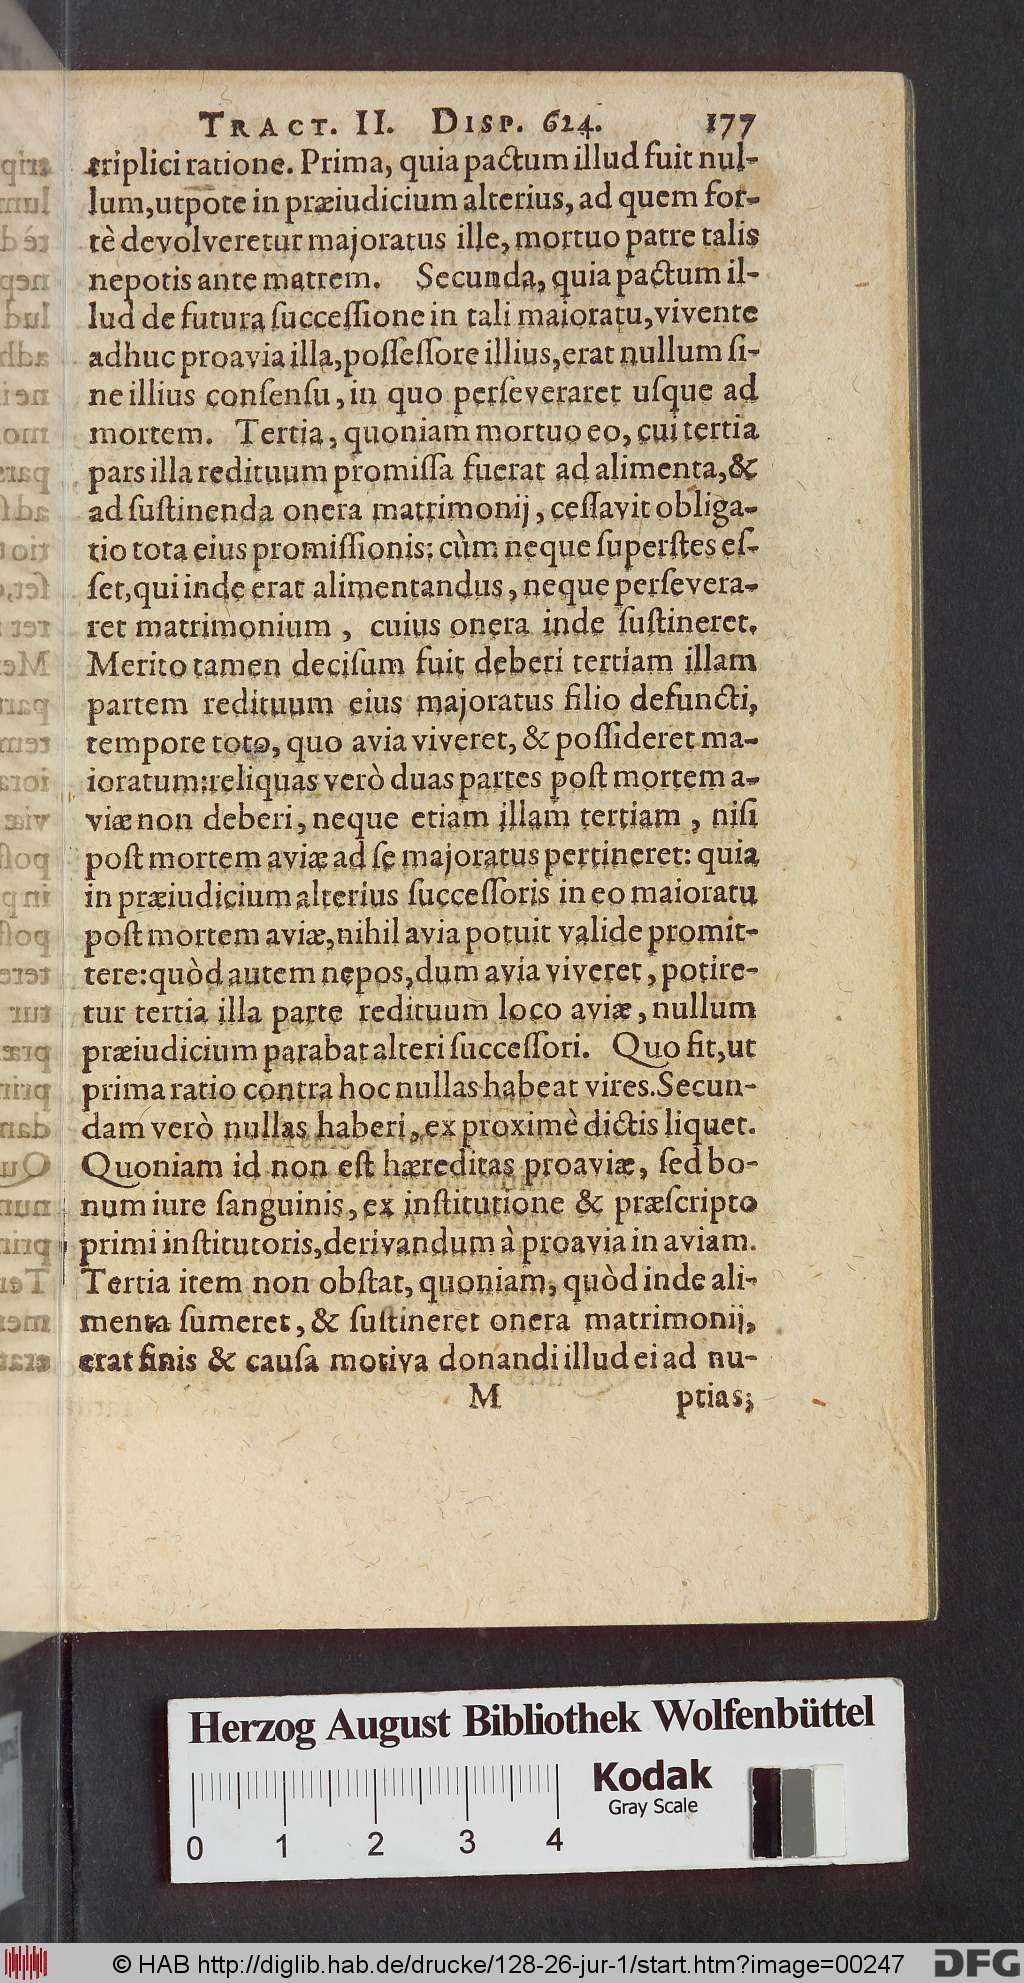 TRACT. II. DISP. 624. 177
triplici ratione. Prima, quia pactum illud fuit nul-
lum, utpote in præiudicium alterius, ad quem for-
tè devolveretur majoratus ille, mortuo patre talis
nepotis ante matrem. Secunda, quia pactum il-
lud de futura ſucceſſione in tali maioratu, vivente
adhuc proavia illa, poſſeſſore illius, erat nullum ſi-
ne illius conſenſu, in quo perſeveraret uſque ad
mortem. Tertia, quoniam mortuo eo, cui tertia
pars illa redituum promiſſa fuerat ad alimenta, &
ad ſuſtinenda onera matrimonij, ceſſavit obliga-
tio tota eius promiſſionis; cùm neque ſuperſtes eſ-
ſet, qui inde erat alimentandus, neque perſevera-
ret matrimonium, cuius onera inde ſuſtineret.
Merito tamen deciſum fuit deberi tertiam illam
partem redituum eius majoratus filio defuncti,
tempore toto, quo avia viveret, & poſſideret ma-
ioratum: reliquas verò duas partes poſt mortem a-
viæ non deberi, neque etiam illam tertiam, niſi
poſt mortem aviæ ad ſe majoratus pertineret: quia
in præiudicium alterius ſucceſſoris in eo maioratu
poſt mortem aviæ, nihil avia potuit valide promit-
tere: quòd autem nepos, dum avia viveret, potire-
tur tertia illa parte redituum loco aviæ, nullum
præiudicium parabat alteri ſucceſſori. Quo fit, ut
prima ratio contra hoc nullas habeat vires. Secun-
dam verò nullas haberi, ex proximè dictis liquet.
Quoniam id non eſt hæreditas proaviæ, ſed bo-
num iure ſanguinis, ex inſtitutione & præſcripto
primi inſtitutoris, derivandum à proavia in aviam.
Tertia item non obſtat, quoniam, quòd inde ali-
menta ſumeret, & ſuſtineret onera matrimonij,
erat finis & cauſa motiva donandi illud ei ad nu-
M ptias;
Herzog August Bibliothek Wolfenbüttel
Kodak
Gray Scale
0 1 2 3 4
© HAB http://diglib.hab.de/drucke/128-26-jur-1/start.htm?image=00247 DFG